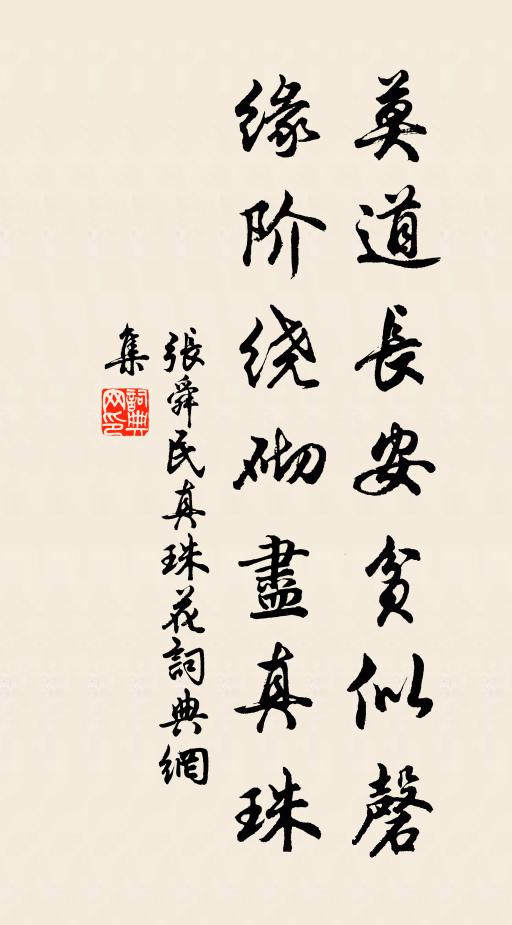 莫道長安貧似磬
缘阶绕砌盡真珠
張舜民真珠花詞典網
集
詞典网印